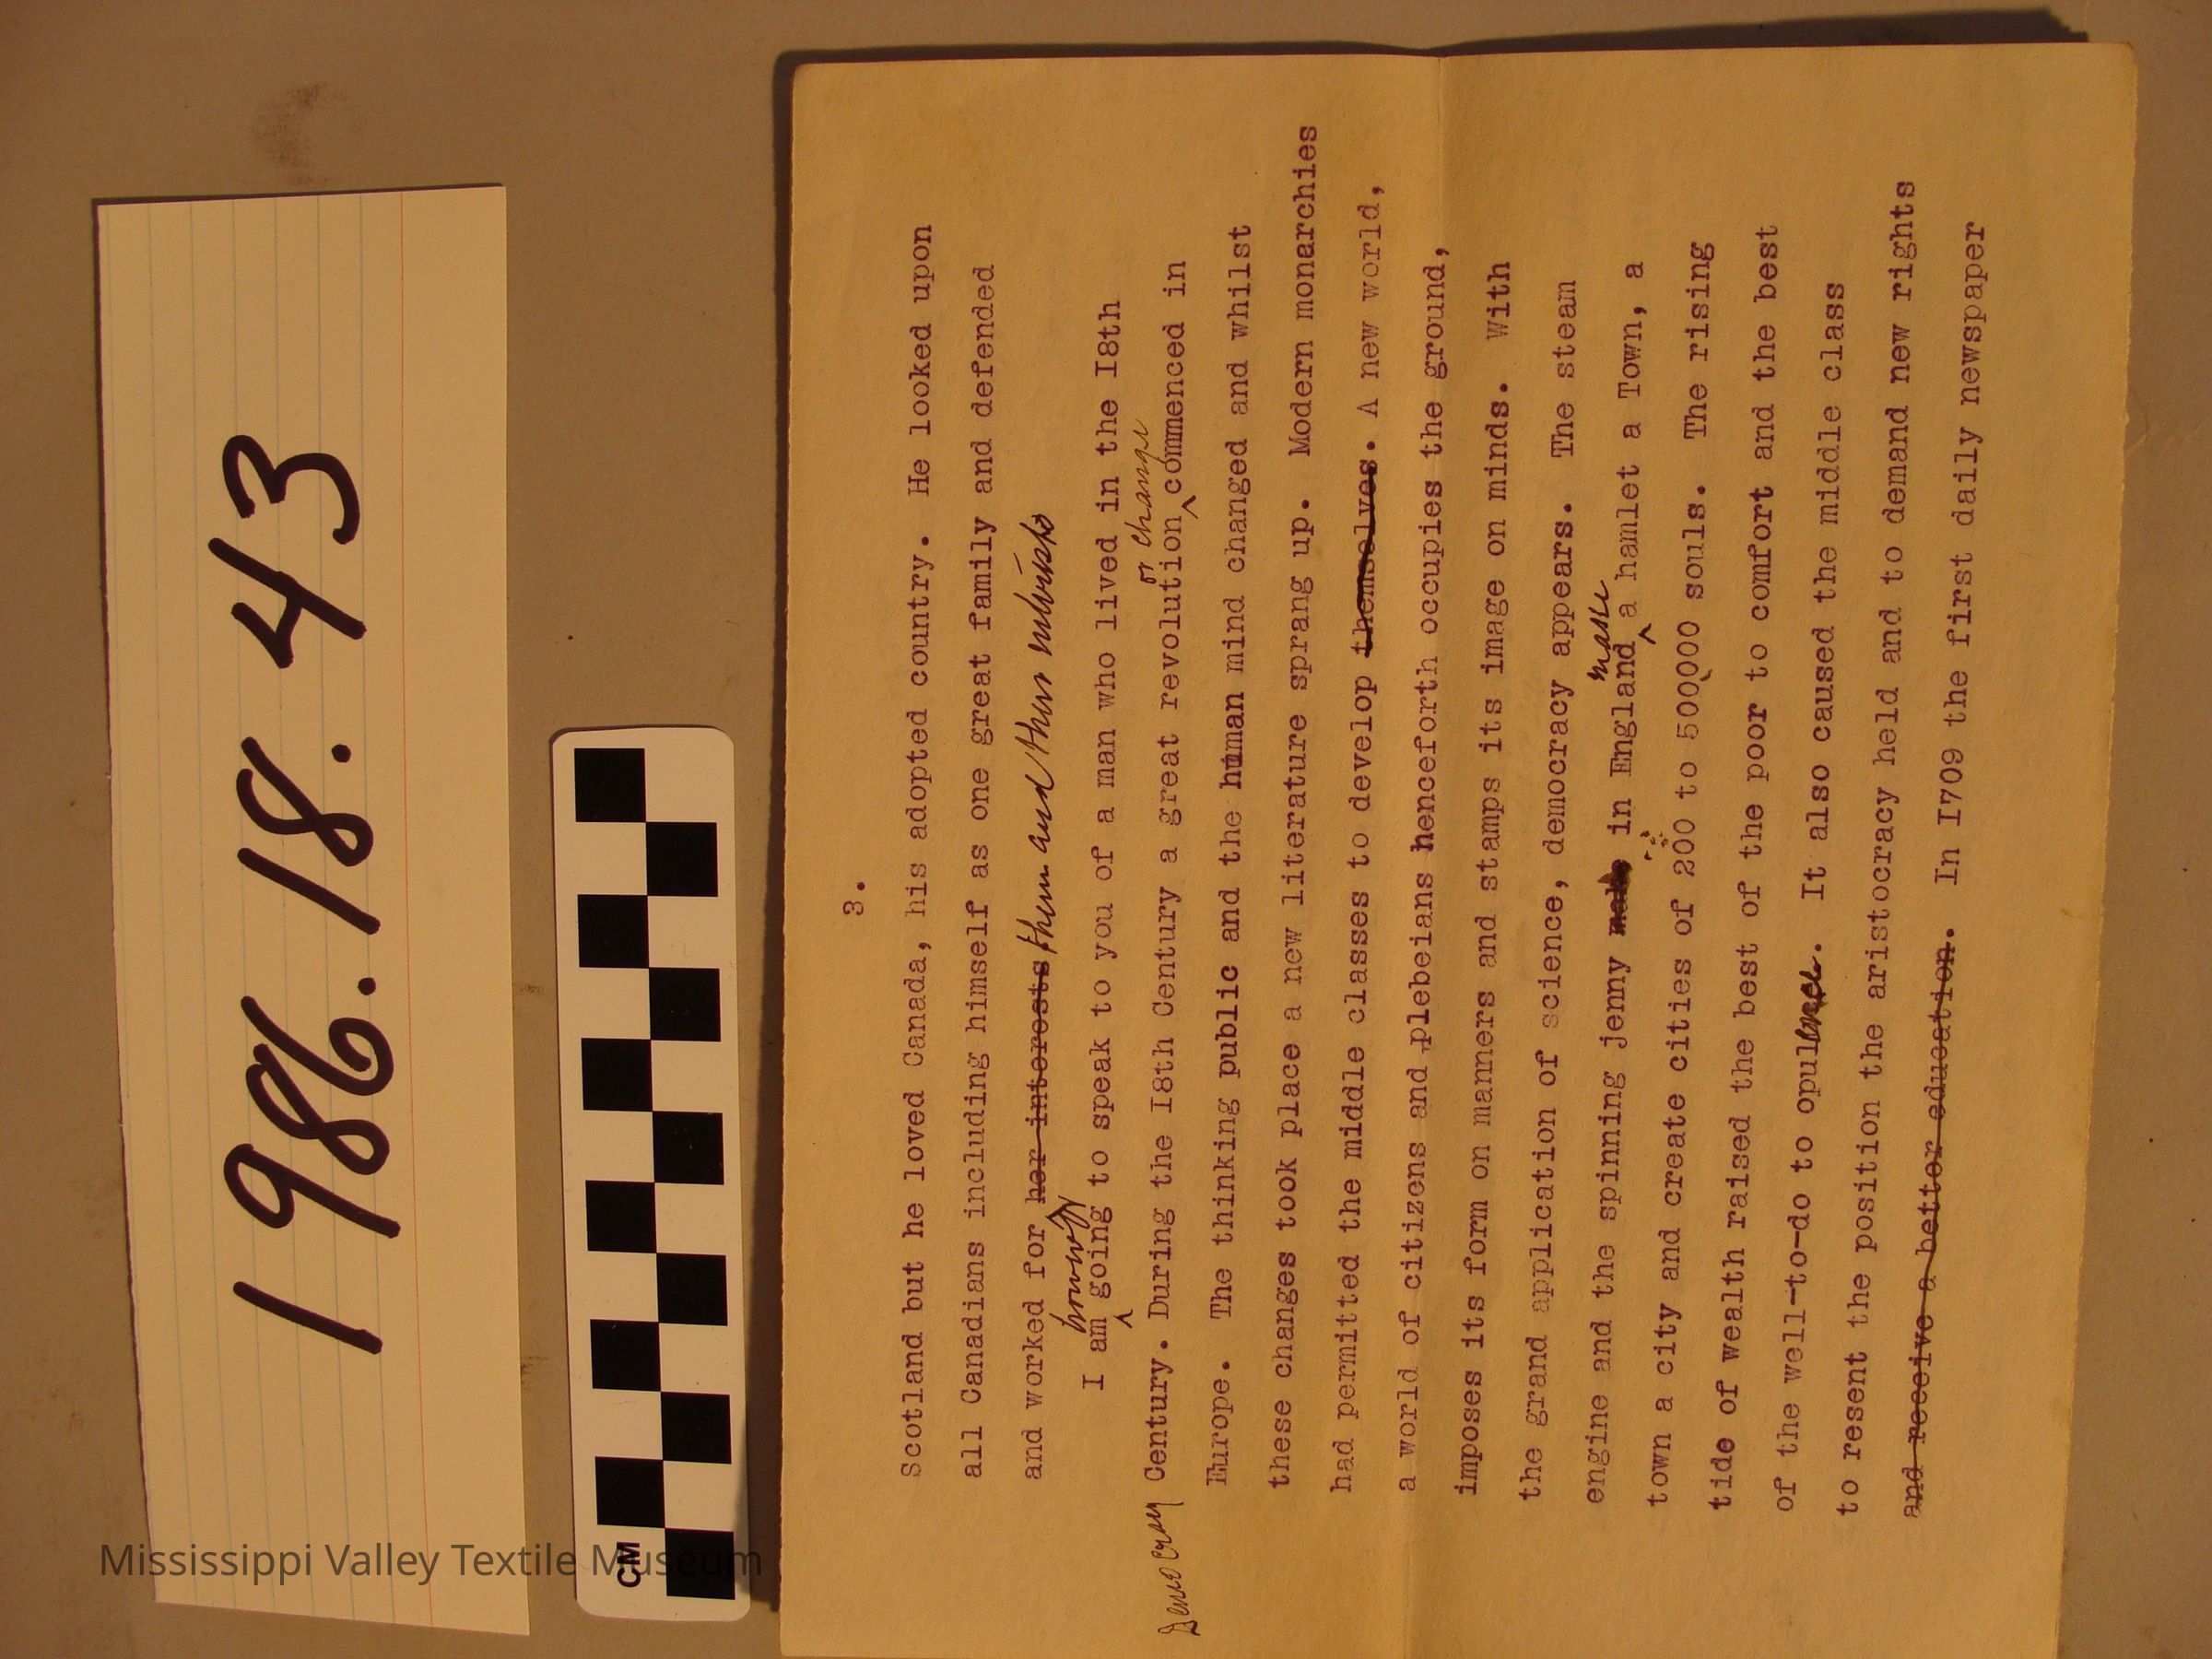 1986.18.43
CM
Mississippi Valley Textile Museum
3.
Scotland but he loved Canada, his adopted country. He looked upon
all Canadians including himself as one great family and defended
and worked for her interests, them and their interests
however
I am going to speak to you of a man who lived in the I8th
or change
Democracy
Century. During the I8th Century a great revolution commenced in
Europe. The thinking public and the human mind changed and whilst
these changes took place a new literature sprang up. Modern monarchies
had permitted the middle classes to develop themselves. A new world,
a world of citizens and plebeians henceforth occupies the ground,
imposes its form on manners and stamps its image on minds. With
the grand application of science, democracy appears. The steam
make
engine and the spinning jenny make in England a hamlet a Town, a
town a city and create cities of 200 to 500000 souls. The rising
tide of wealth raised the best of the poor to comfort and the best
of the well-to-do to opulence. It also caused the middle class
to resent the position the aristocracy held and to demand new rights
and receive a better education. In I709 the first daily newspaper